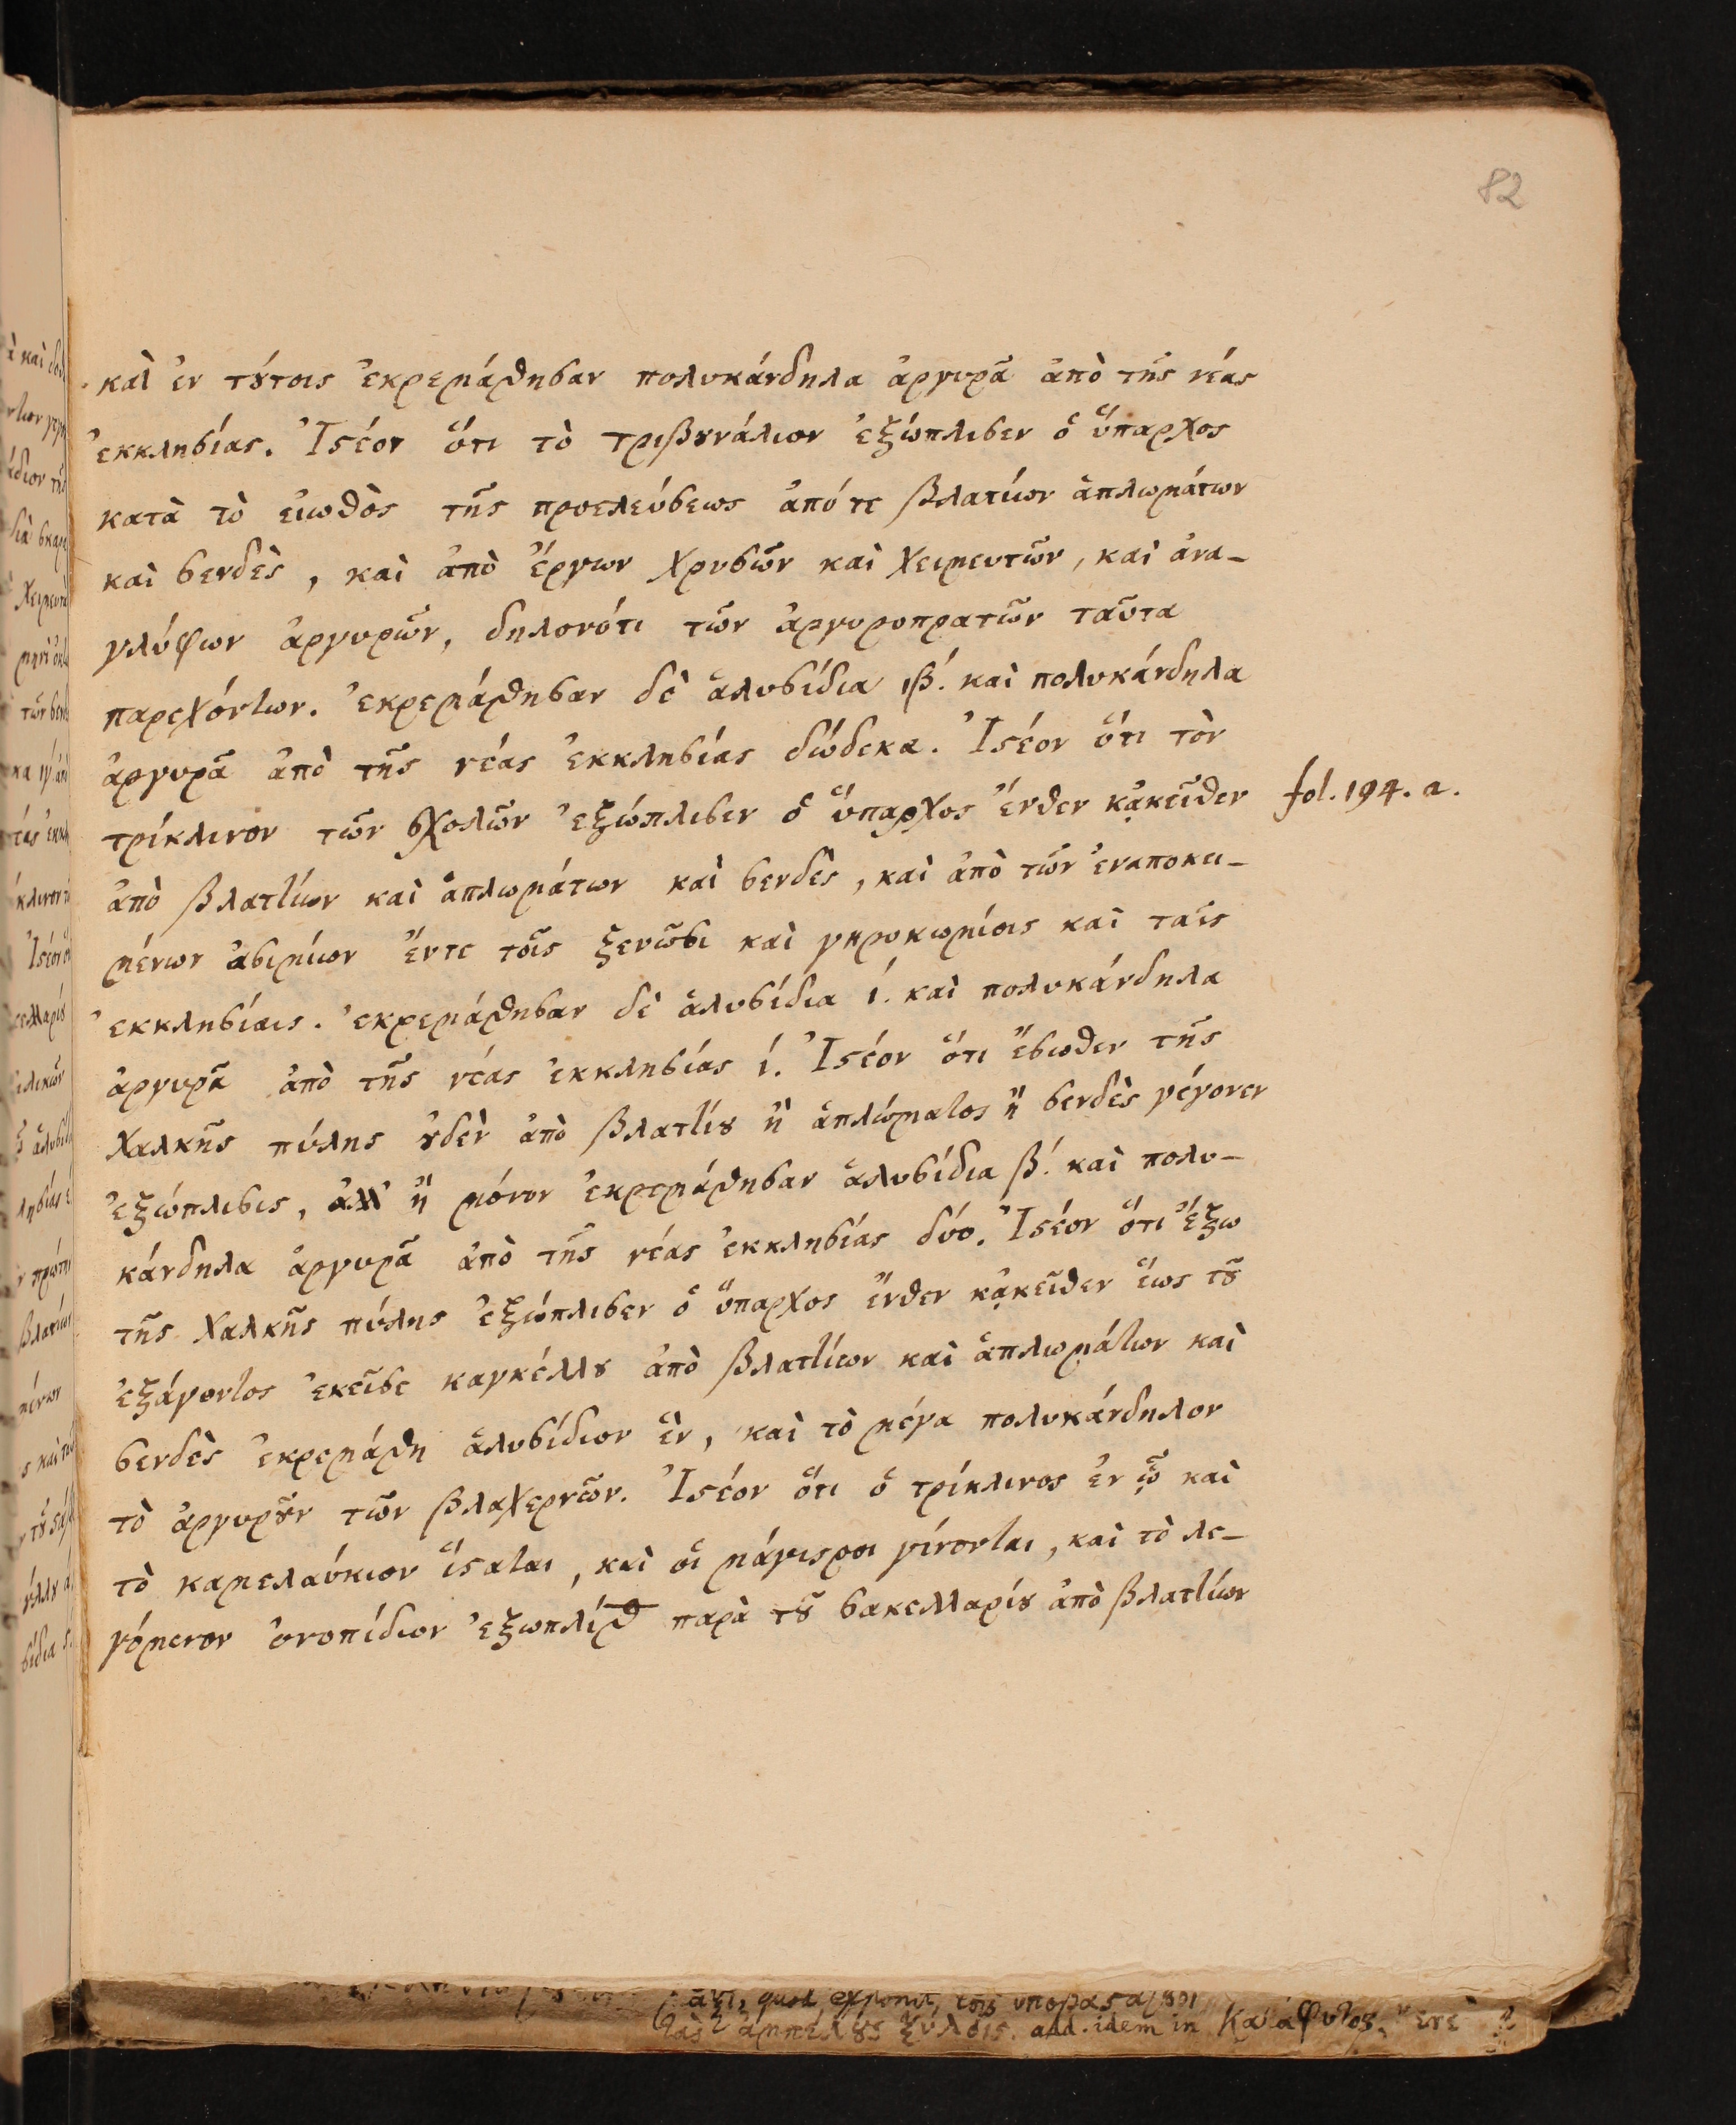 82
καὶ ἐν τούτοις ἐκρεμάσθησαν πολυκάνδηλα ἀργυρᾶ ἀπὸ τῆς νέας
ἐκκλησίας. Ἰστέον ὅτι τὸ τριβουνάλιον ἐξώπλισεν ὁ ὕπαρχος
κατὰ τὸ εἰωθὸς τῆς προελεύσεως ἀπό τε βλατίων ἁπλωμάτων
καὶ σενδὲς, καὶ ἀπὸ ἔργων χρυσῶν καὶ χειμευτῶν, καὶ ἀνα-
γλύφων ἀργυρῶν, δηλονότι τῶν ἀργυροπρατῶν ταῦτα
παρεχόντων. ἐκρεμάσθησαν δὲ ἁλυσίδια ιβ΄. καὶ πολυκάνδηλα
ἀργυρᾶ ἀπὸ τῆς νέας ἐκκλησίας δώδεκα. Ἰστέον ὅτι τὸν
τρίκλινον τῶν σχολῶν ἐξώπλισεν ὁ ὕπαρχος ἔνθεν κᾀκεῖθεν fol. 194. a.
ἀπὸ βλαττίων καὶ ἁπλωμάτων καὶ σενδὲς, καὶ ἀπὸ τῶν ἐναποκει-
μένων ἀσιμίων ἔντε τοῖς ξενῶσι καὶ γηροκωμίοις καὶ ταῖς
ἐκκλησίαις. ἐκρεμάσθησαν δὲ ἁλυσίδια ί. καὶ πολυκάνδηλα
ἀργυρᾶ ἀπὸ τῆς νέας ἐκκλησίας ί. Ἰστέον ὅτι ἔσωθεν τῆς
χαλκῆς πύλης οὐδὲν ἀπὸ βλαττίου ἢ ἁπλώματος ἢ σενδὲς γέγονεν
ἐξώπλισις, ἀλλ' ἢ μόνον ἐκρεμάσθησαν ἁλυσίδια β΄. καὶ πολυ-
κάνδηλα ἀργυρᾶ ἀπὸ τῆς νέας ἐκκλησίας δύο. Ἰστέον ὅτι ἔξω
τῆς χαλκῆς πύλης ἐξώπλισεν ὁ ὕπαρχος ἔνθεν κᾀκεῖθεν ἕως τοῦ
ἐξάγοντος ἐκεῖσε καγκέλλου ἀπὸ βλαττίων καὶ ἁπλωμάτων καὶ
σενδὲς ἐκρεμάσθη ἁλυσίδιον ἓν, καὶ τὸ μέγα πολυκάνδηλον
τὸ ἀργυροῦν τῶν βλαχερνῶν. Ἰστέον ὅτι ὁ τρίκλινος ἐν ᾧ καὶ
τὸ καμελαύκιον ἵσταται, καὶ οἱ μάγιστροι γίνονται, καὶ τὸ λε-
γόμενον ὀνοπίδιον ἐξωπλίσθ παρὰ τοῦ σακελλαρίου ἀπὸ βλαττίων